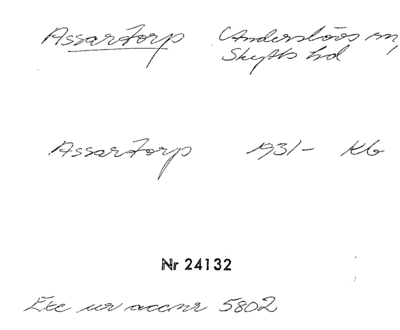 Assartorp Anderslövs sn,
Skytts hd
Assartorp 1931- Kb
Nr 24132
Exc ur accnr 5802